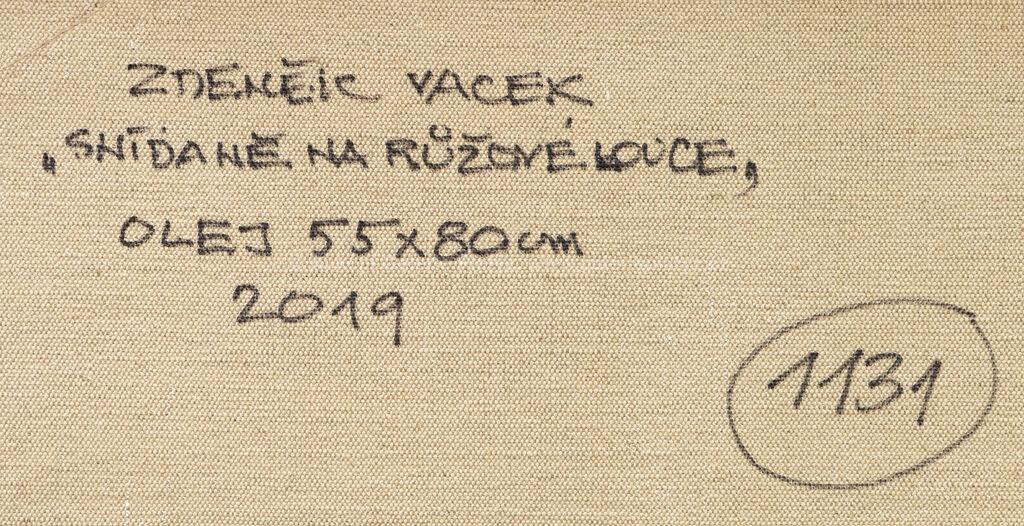 ZDENĚK VACEK
„SNÍDANĚ NA RŮŽOVÉ LOUCE„
OLEJ 55x80cm
2019
1131